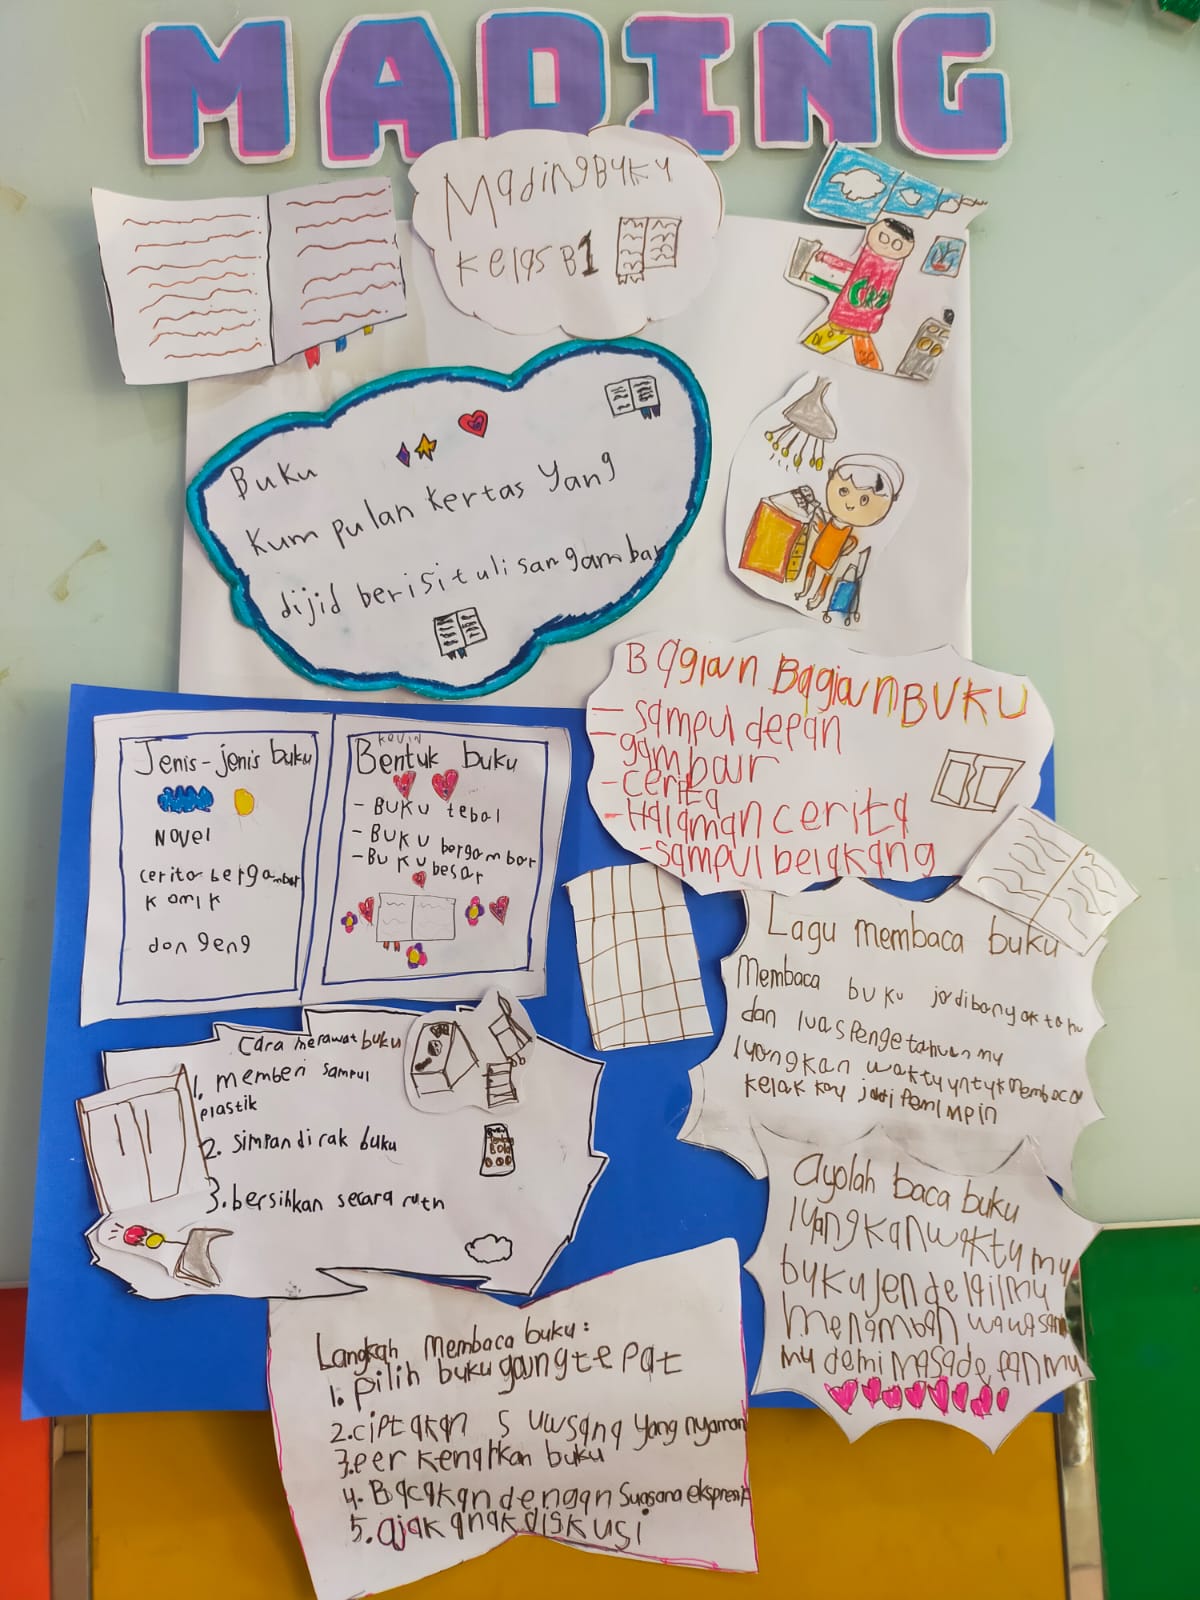 MADING
Mading Buku
Kelas B1
Buku
Kumpulan kertas yang
dijid berisi tulisan gambar
Bagian Bagian BUKU
- sampul depan
- gambar
- cerita
- Halaman cerita
- sampul belakang
Jenis-jenis buku
Novel
cerita bergambar
komik
dongeng
Kevin
Bentuk buku
- BUKU tebal
- BUKU bergambar
- BUKU besar
Lagu membaca buku
Membaca buku jadi banyak tahu
dan luas pengetahuan mu
luangkan waktu untuk membaca
kelak kau jadi Pemimpin
Cara merawat buku
1. memberi sampul
plastik
2. Simpan di rak buku
3. bersihkan secara rutn
Ayolah baca buku
luangkan waktu mu
buku jendela ilmu
menambah wawasan
mu demi masa depan mu
Langkah membaca buku:
1. pilih buku yang tepat
2. ciptakan suwsana yang nyaman
3. per kenalkan buku
4. Bacakan dengan Suasana ekspresif
5. ajak anak diskusi